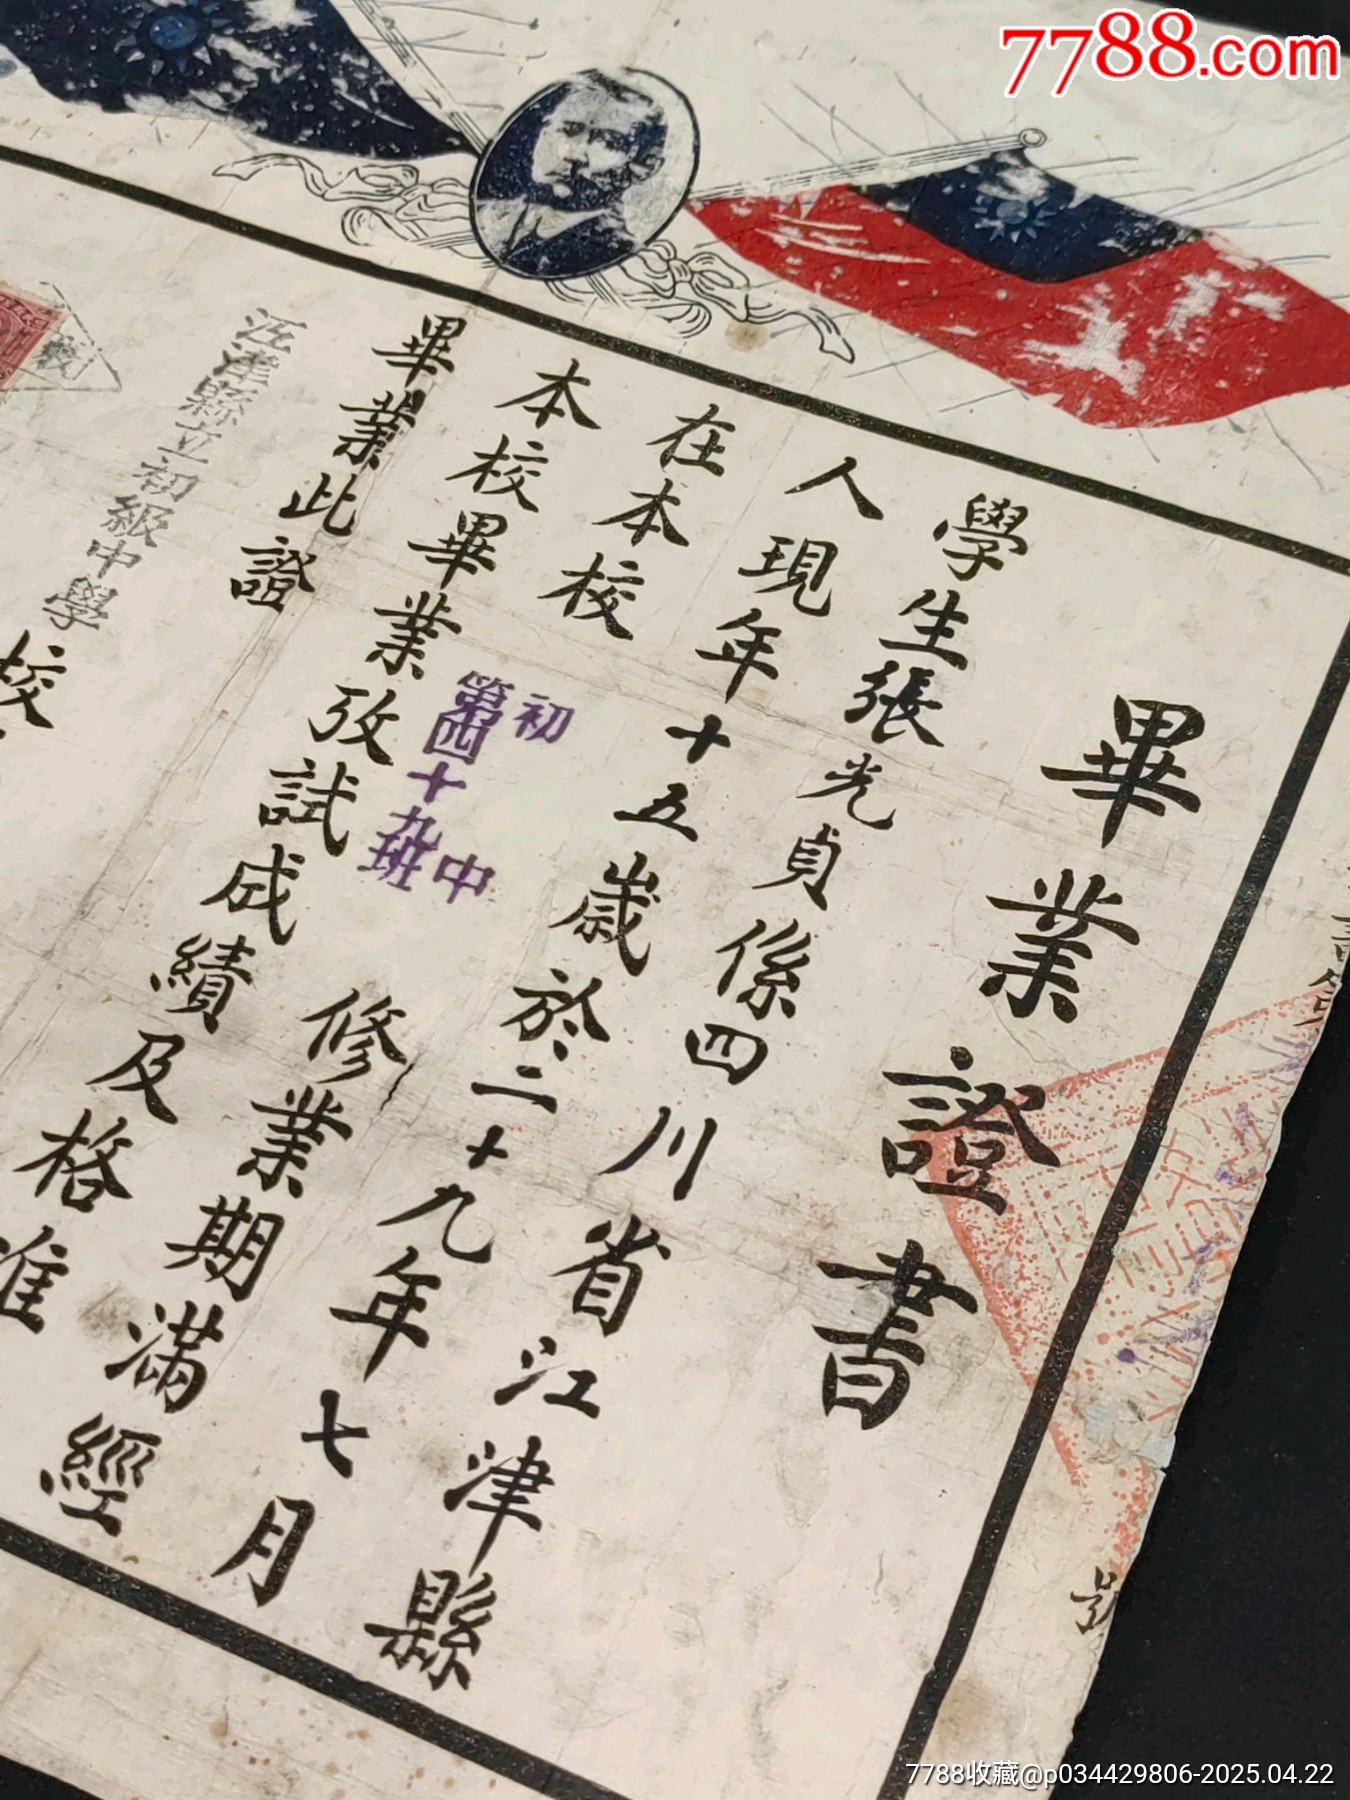 7788.com
畢業證書
學生張光貞係四川省江津縣
人現年十五歲於二十九年七月
在本校
初中
第四十九班
修業期滿經
本校畢業攷試成績及格准
畢業此證
江津縣立初級中學
校
號
7788收藏@p034429806-2025.04.22